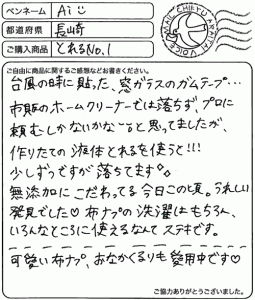 ペンネーム Ai
都道府県 長崎
ご購入商品 とれるNo.1
ご自由に商品に関するご感想などお書きください。
台風の時に貼った、窓ガラスのガムテープ…
市販のホームクリーナーでは落ちず、プロに
頼むしかないかなぁと思ってましたが、
作りたての液体とれるを使うと!!!
少しずつですが落ちてます。
無添加にこだわってる今日この頃。うれしい
発見でした♡布ナプの洗濯はもちろん、
いろんなところに使えるなんてステキです。
可愛い布ナプ、おなかくるりも愛用中です♡
ご協力ありがとうございました。